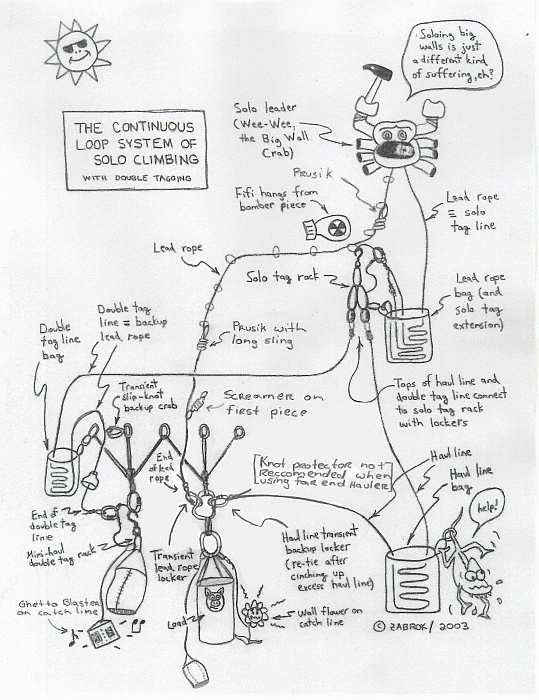 Soloing big
walls is just
a different kind
of suffering, eh?
THE CONTINUOUS
LOOP SYSTEM OF
SOLO CLIMBING
WITH DOUBLE TAGGING
Solo leader
(Wee-Wee,
the Big Wall
Crab)
Prusik
Fifi hangs from
bomber piece
Lead rope
≡ solo
tag line
Lead rope
Solo tag rack
Lead rope
bag (and
solo tag
extension)
Double tag
line = backup
lead rope
Double
tag line
bag
Prusik with
long sling
Transient
slip-knot
backup crab
Screamer on
first piece
Tops of haul line and
double tag line connect
to solo tag rack
with lockers
End
of lead
rope
Knot protector not
Reccommended when
using far end Hauler
Haul line
Haul line
bag
help!
End of
double tag
line
Mini-haul
double tag rack
Transient
lead rope
locker
Haul line transient
backup locker
(re-tie after
cinching up
excess haul line)
Ghetto Blaster
on catch line
Load
Wall flower on
catch line
© ZABROK / 2003